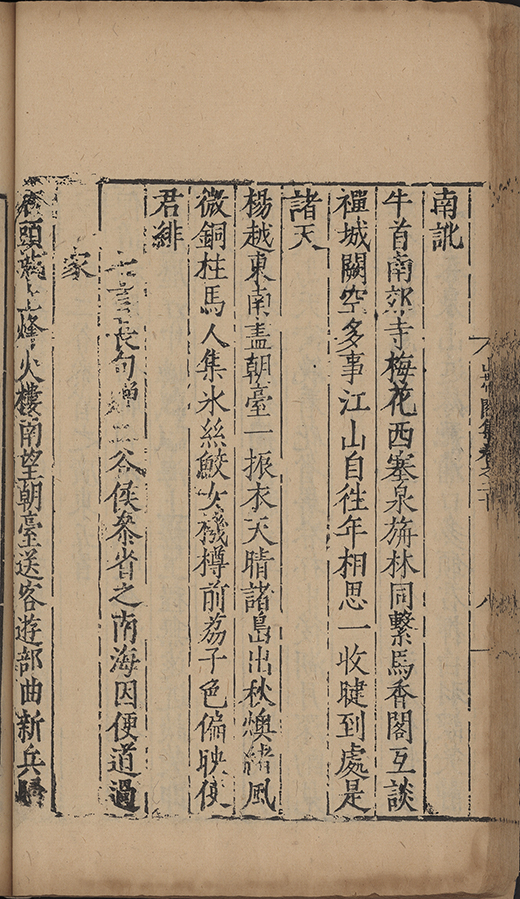 集卷之二十 八
南訛
牛首南郊寺梅花西塞泉旃林同繫馬香閣互談
禪城闕空多事江山自往年相思一收睫到處是
諸天
楊越東南盡朝臺一振衣天晴諸島出秋燠緒風
微銅柱馬人集氷絲鮫女機樽前荔子色偏映使
君緋
七言長句贈二谷侯叅省之南海因便道過
家
頭上烽火樓南望朝臺送客遊部曲新兵